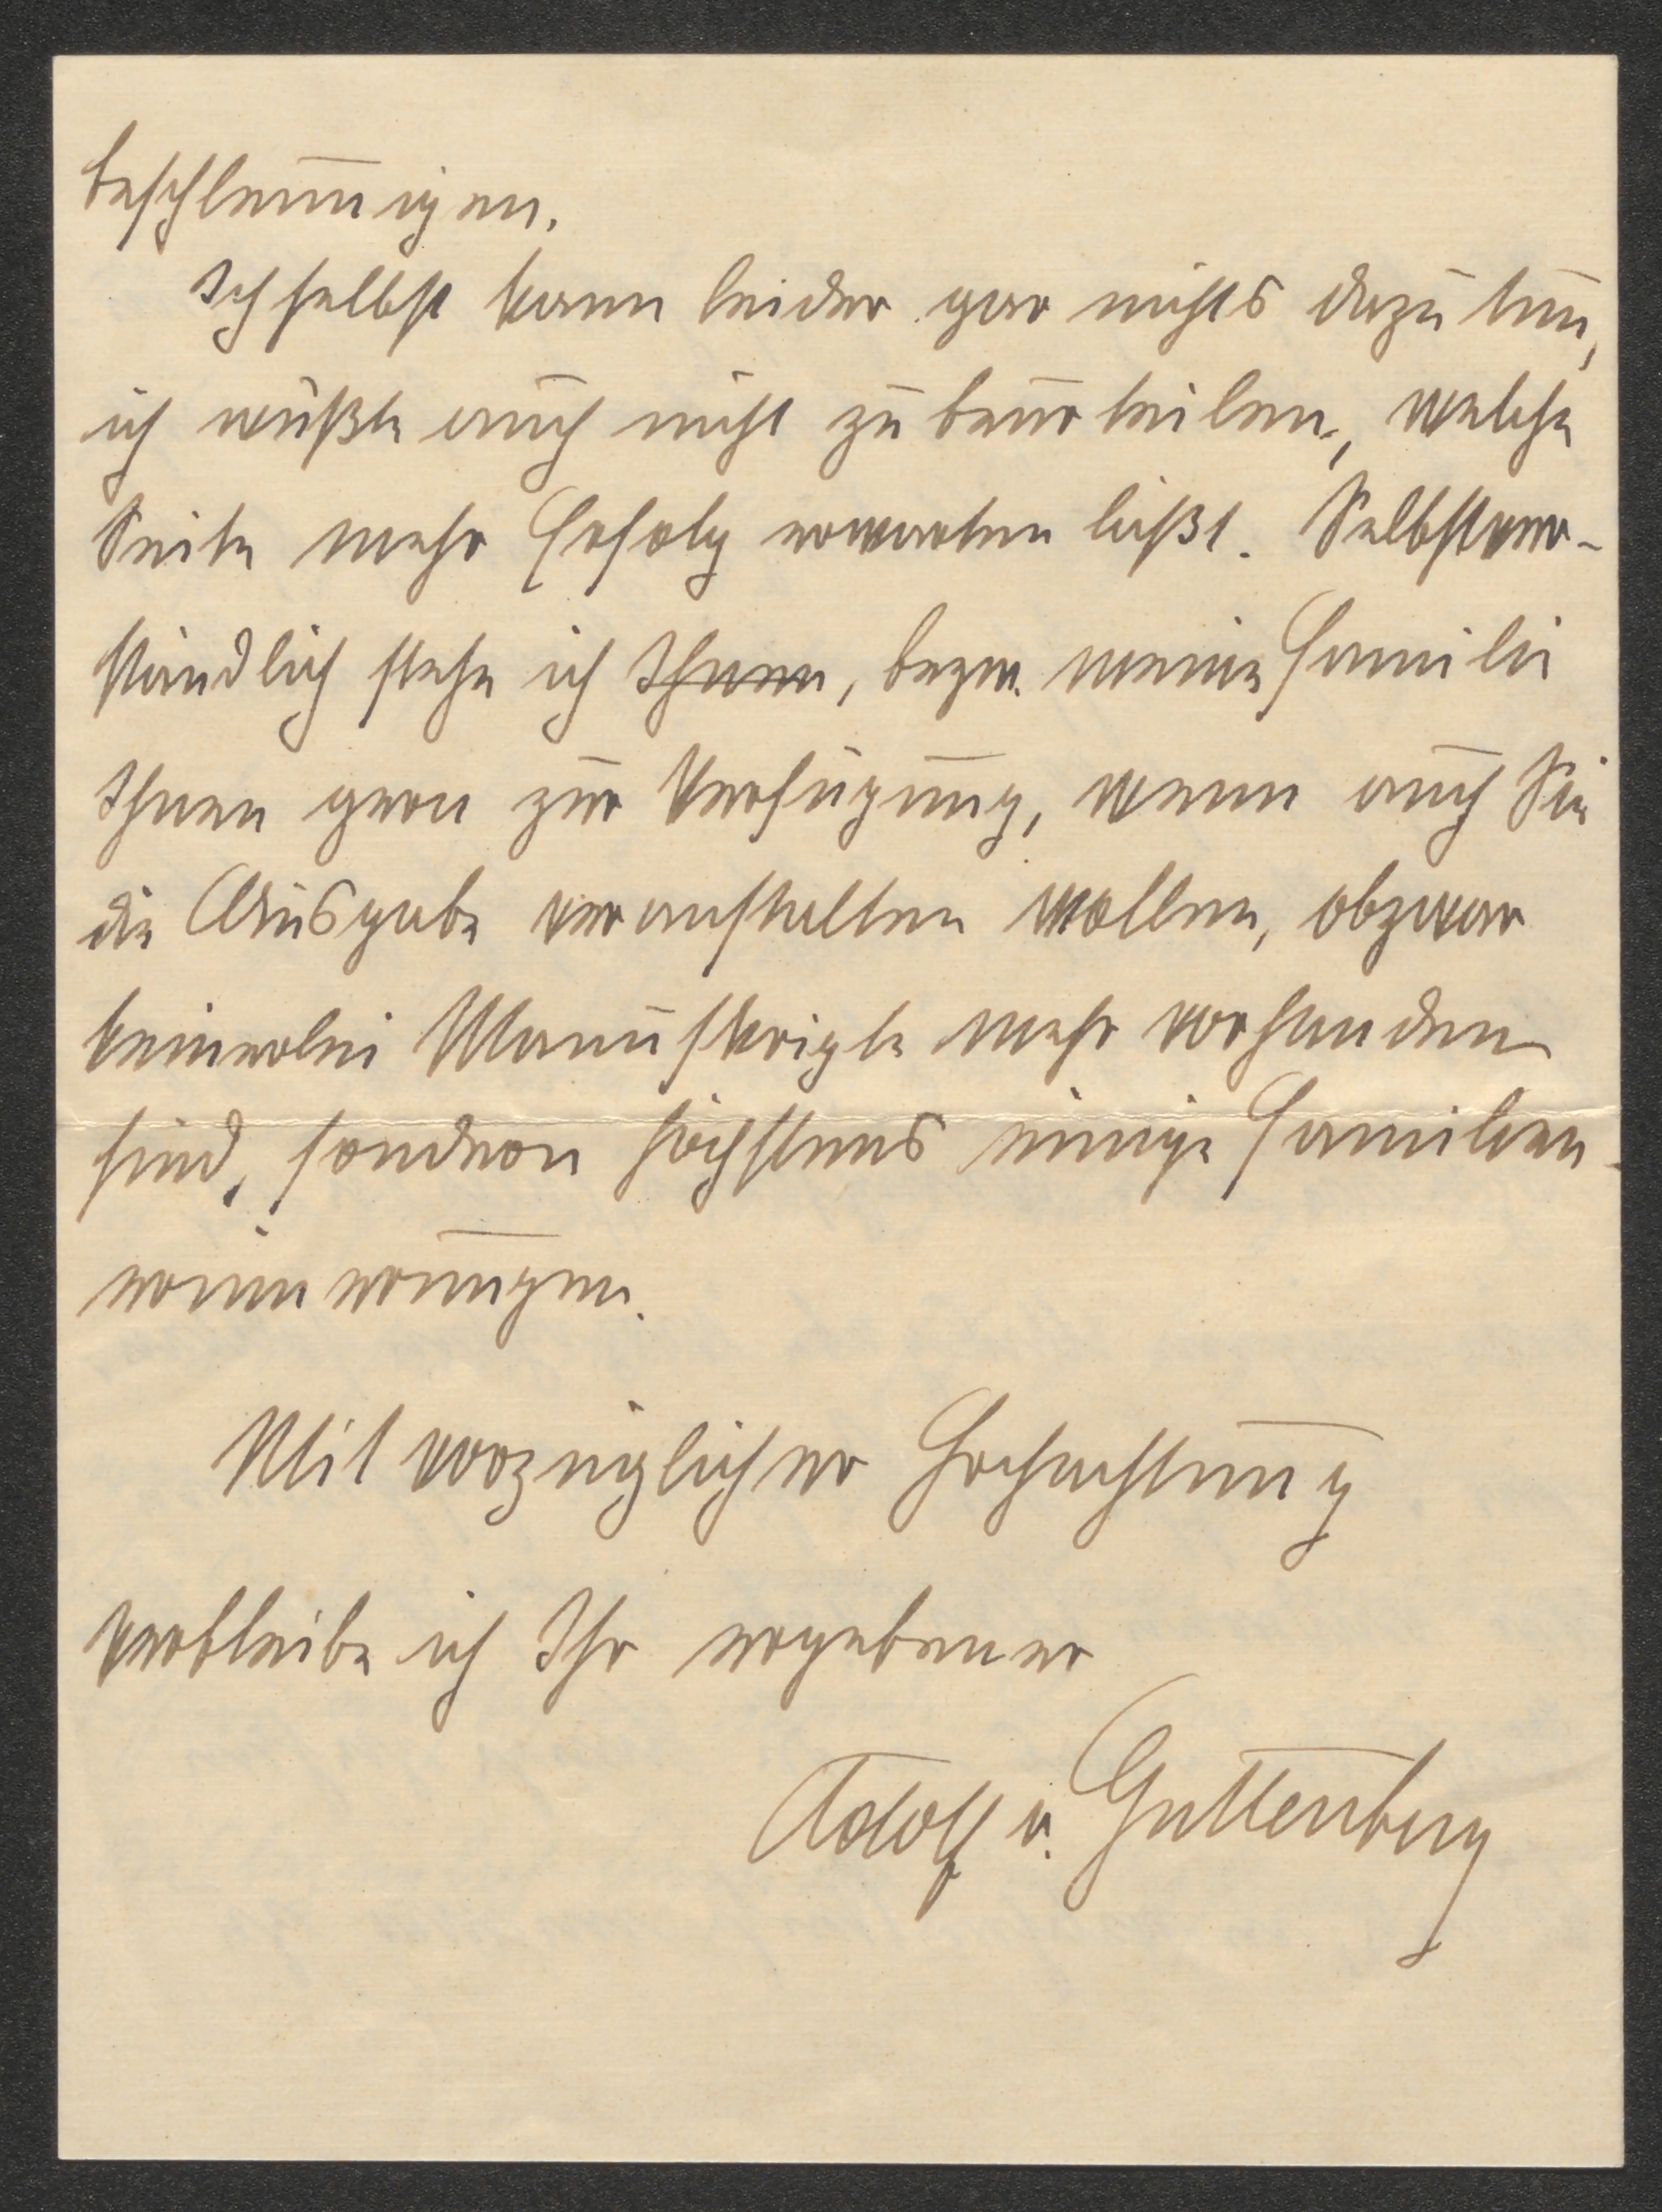 beschleunigen.
Ich selbst kann leider gar nichts dazu tun,
ich wüßte auch nicht zu beurteilen, welche
Seite mehr Erfolg erwarten läßt. Selbstver-
ständlich stehe ich Ihnen, bezw. meine Familie
Ihnen gern zur Verfügung, wenn auch Sie
die Ausgabe veranstalten wollen, obzwar
keinerlei Manuskripte mehr vorhanden
sind, sondern höchstens einige Familien-
erinnerungen.
Mit vorzüglicher Hochachtung
verbleibe ich Ihr ergebener
Adolf v. Guttenberg